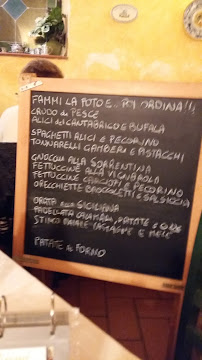 FAMMI LA FOTO E... POI ORDINA!!!
CRUDO di PESCE
ALICI del CANTABRICO E BUFALA
SPAGHETTI ALICI E PECORINO
TONNARELLI GAMBERI E PISTACCHI
GNOCCHI ALLA SORRENTINA
FETTUCCINE ALLA VIGNAROLA
FETTUCCINE CARCIOFI E PECORINO
ORECCHIETTE BROCCOLETTI E SALSICCIA
ORATA alla SICILIANA
PADELLATA CALAMARI, PATATE E
STINCO MAIALE CASTAGNE E MELE
PATATE al FORNO